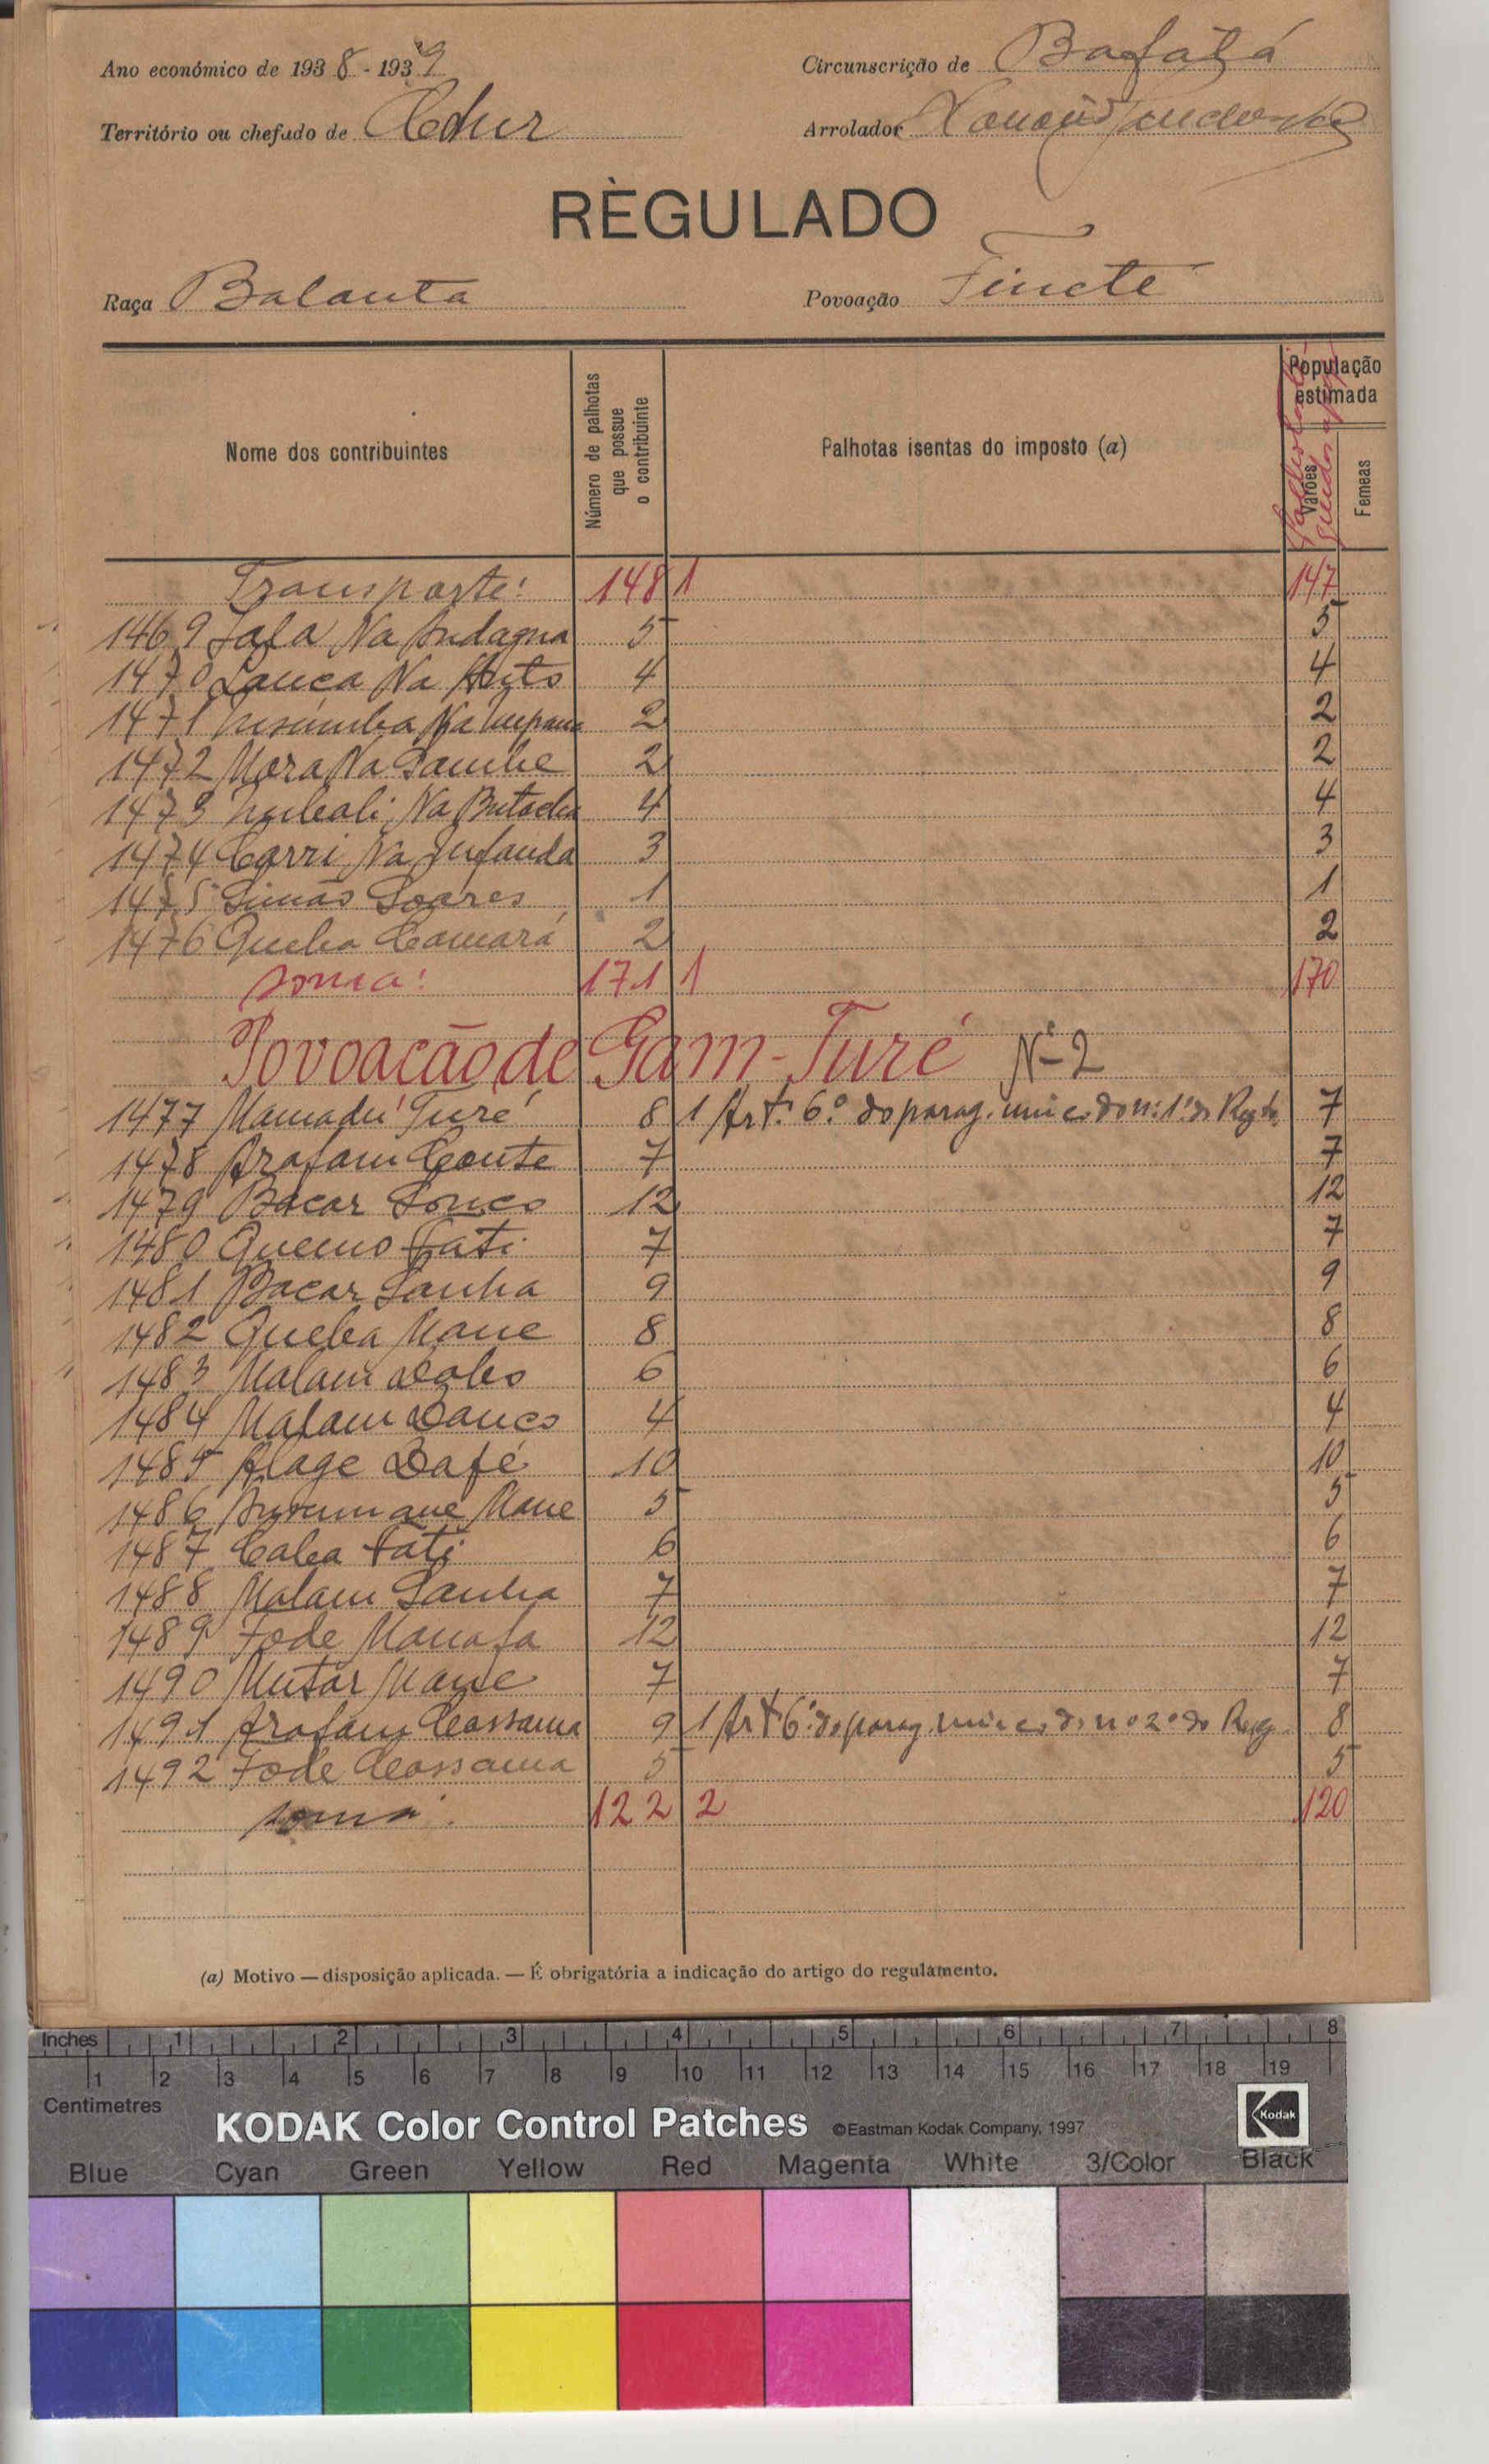 Ano económico de 1938 - 1939
Circunscrição de Bafatá
Território ou chefado de
Arrolador
RÈGULADO
Raça Balanta
Povoação Fincté
Nome dos contribuintes
Número de palhotas que possue o contribuinte
Palhotas isentas do imposto (a)
População estimada
Varões
Femeas
Transporte: 148 1 147
1469 Na 5 5
1470 Na 4 4
1471 Na 2 2
1472 Mora Na 2 2
1473 Na 4 4
1474 Na 3 3
1475 Simão Soares 1 1
1476 Queba Camará 2 2
soma: 171 1 170
Povoacão de Gam-Turé Nº 2
1477 Mamadú Turé 8 1 Art.º 6.º do parag. unico do n.º 1.º do Regto. 7
1478 Arafam Conte 7 7
1479 Bacar Sonco 12 12
1480 Quemo Fati 7 7
1481 Bacar Sanha 9 9
1482 Queba Mane 8 8
1483 Malam 6 6
1484 Malam 4 4
1485 Alage Dafé 10 10
1486 Mane 5 5
1487 Fati 6 6
1488 Malam Sanha 7 7
1489 Fode 12 12
1490 Mutar Mane 7 7
1491 Arafam Cassama 9 1 Art.º 6.º do parag. unico do nº 2º do Reg. 8
1492 Fode Cassama 5 5
soma. 122 2 120
(a) Motivo — disposição aplicada. — É obrigatória a indicação do artigo do regulamento.
Inches 1 2 3 4 5 6 7 8
1 2 3 4 5 6 7 8 9 10 11 12 13 14 15 16 17 18 19
Centimetres
KODAK Color Control Patches ©Eastman Kodak Company, 1997 Kodak
Blue Cyan Green Yellow Red Magenta White 3/Color Black